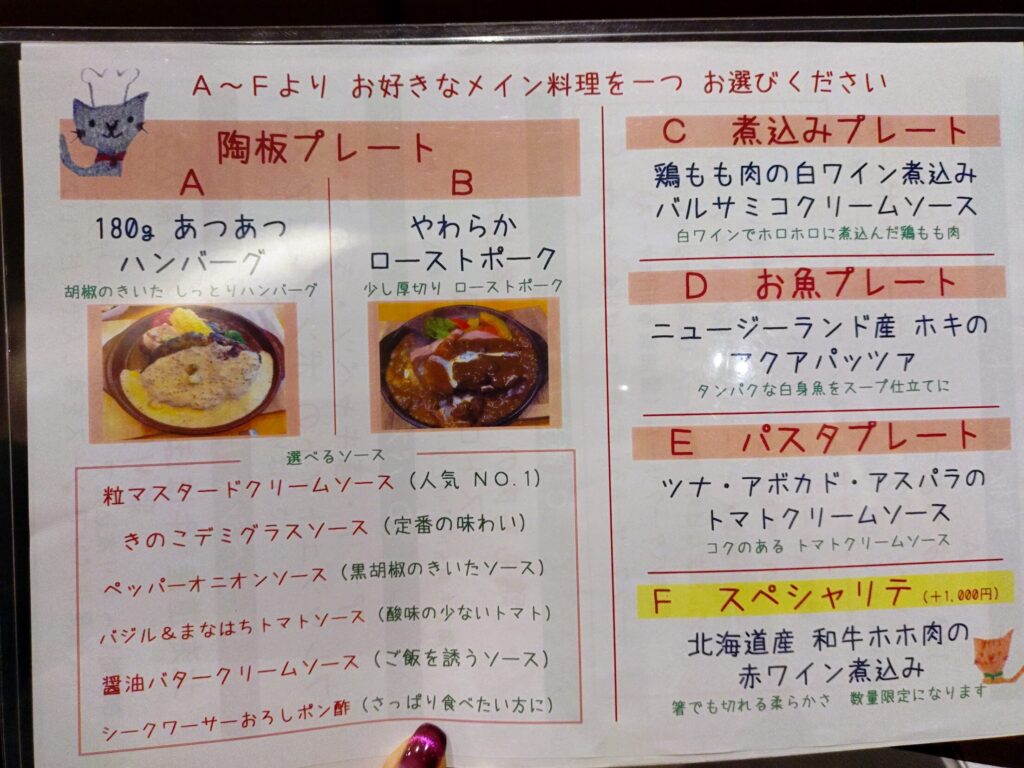 A～Fより お好きなメイン料理を一つ お選びください
陶板プレート
A
180g あつあつ
ハンバーグ
胡椒のきいた しっとりハンバーグ
B
やわらか
ローストポーク
少し厚切り ローストポーク
選べるソース
粒マスタードクリームソース (人気 NO.1)
きのこデミグラスソース (定番の味わい)
ペッパーオニオンソース (黒胡椒のきいたソース)
バジル＆まなはちトマトソース (酸味の少ないトマト)
醤油バタークリームソース (ご飯を誘うソース)
シークワーサーおろしポン酢 (さっぱり食べたい方に)
C 煮込みプレート
鶏もも肉の白ワイン煮込み
バルサミコクリームソース
白ワインでホロホロに煮込んだ鶏もも肉
D お魚プレート
ニュージーランド産 ホキの
アクアパッツァ
タンパクな白身魚をスープ仕立てに
E パスタプレート
ツナ・アボカド・アスパラの
トマトクリームソース
コクのある トマトクリームソース
F スペシャリテ (＋1,000円)
北海道産 和牛ホホ肉の
赤ワイン煮込み
箸でも切れる柔らかさ 数量限定になります